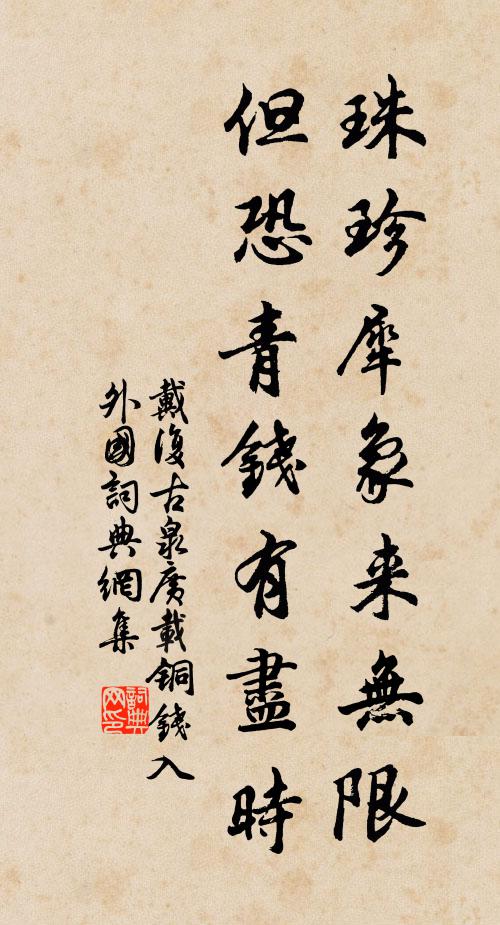 珠珍犀象来無限
但恐青錢有盡時
戴復古泉廣載銅錢入
外國詞典網集
詞典網印